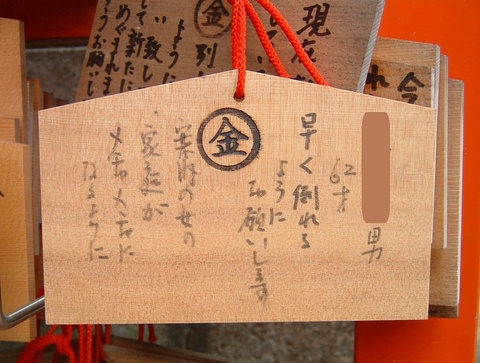 男
62才
早く倒れる
ように
お願いします
金
の女の
家庭が
メチャメチャに
なるように
現在
金
別
ように
致し
して新たに
めぐまれま
うお願いし
今
れ